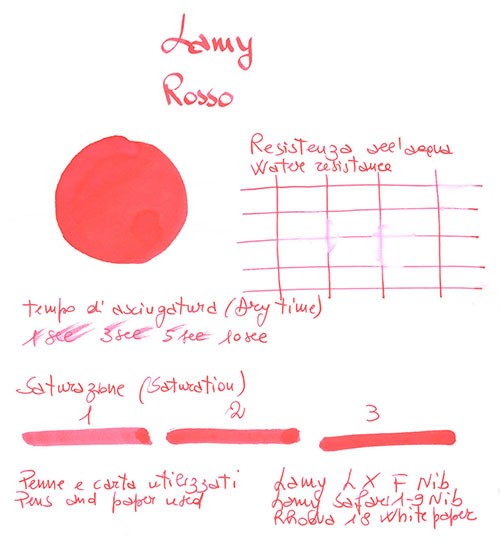 Lamy
Rosso
Resistenza all'acqua
Water resistance
Tempo d'asciugatura (Dry time)
1 sec 3 sec 5 sec 10 sec
Saturazione (Saturation)
1 2 3
Penne e carta utilizzati
Pens and paper used
Lamy LX F Nib
Lamy Safari 1-9 Nib
Rhodia 18 White paper